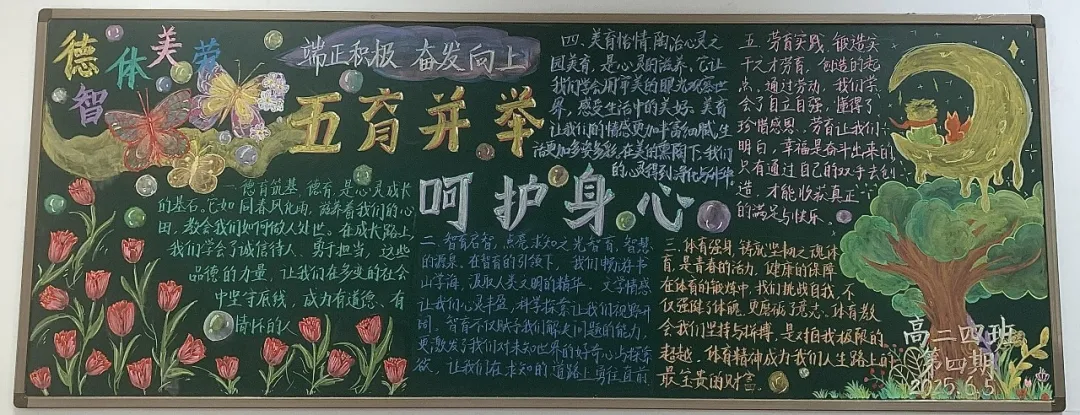 德
体
美
劳
智
端正积极 奋发向上
五育并举
呵护身心
一、德育筑基 德育,是心灵成长
的基石。它如同春风化雨,滋养着我们的心
田,教会我们如何做人处世。在成长路上,
我们学会了诚信待人、勇于担当,这些
品德的力量,让我们在多变的社会
中坚守底线,成为有道德、有
情怀的人
二、智育启智,点亮求知之光 智育,智慧
的源泉。在智育的引领下,我们畅游书
山学海,汲取人类文明的精华。文学情感
让我们心灵丰盈,科学探索让我们视野开
阔。智育不仅赋予我们解决问题的能力,
更激发了我们对未知世界的好奇心与探索
欲,让我们在求知的道路上勇往直前
三、体育强身,铸就坚韧之魂 体
育,是青春的活力,健康的保障
在体育的锻炼中,我们挑战自我,不
仅强健了体魄,更磨砺了意志。体育教
会我们坚持与拼搏,是对自我极限的
超越。体育精神成为我们人生路上的
最宝贵的财富。
四、美育怡情 陶冶心灵之
园 美育,是心灵的滋养。它让
我们学会用审美的眼光观察世
界,感受生活中的美好。美育
让我们的情感更加丰富细腻,生
活更加多姿多彩,在美的熏陶下,我们
的心灵得到净化与升华
五、劳育实践 锻造实
干之才 劳育,创造的起
点。通过劳动,我们学
会了自立自强,懂得了
珍惜感恩。劳育让我们
明白,幸福是奋斗出来的
只有通过自己的双手去创
造,才能收获真正
的满足与快乐
高二四班
第四期
2025.6.5